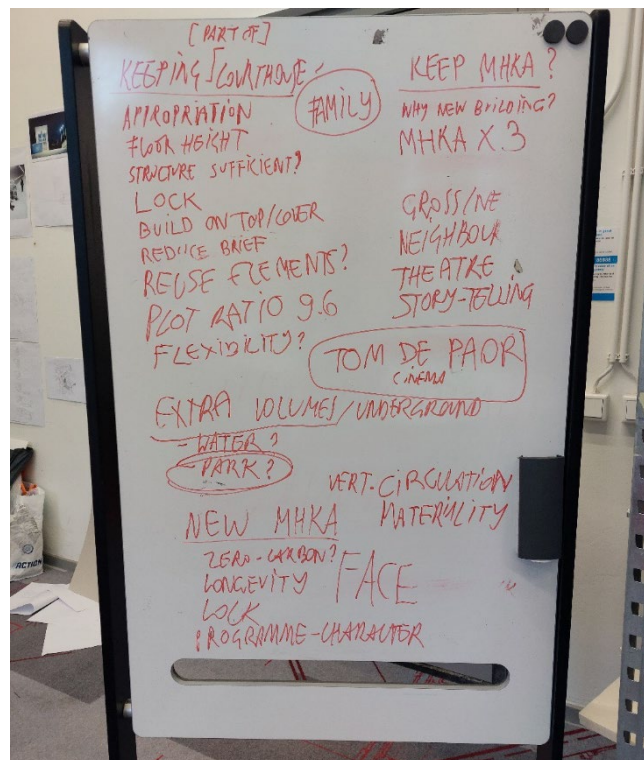 [PART OF]
KEEPING COURTHOUSE
APPROPRIATION
FLOOR HEIGHT
STRUCTURE SUFFICIENT?
LOCK
BUILD ON TOP/COVER
REDUCE BRIEF
REUSE ELEMENTS?
PLOT RATIO 9.6
FLEXIBILITY?
FAMILY
KEEP MHKA?
WHY NEW BUILDING?
MHKA X.3
GROSS/NE
NEIGHBOUR
THEATRE
STORY-TELLING
TOM DE PAOR
CINEMA
EXTRA VOLUMES/UNDERGROUND
- WATER?
- PARK?
VERT. CIRCULATION
MATERIALITY
NEW MHKA
ZERO-CARBON?
LONGEVITY
LOCK
PROGRAMME-CHARACTER
FACE
ACTION